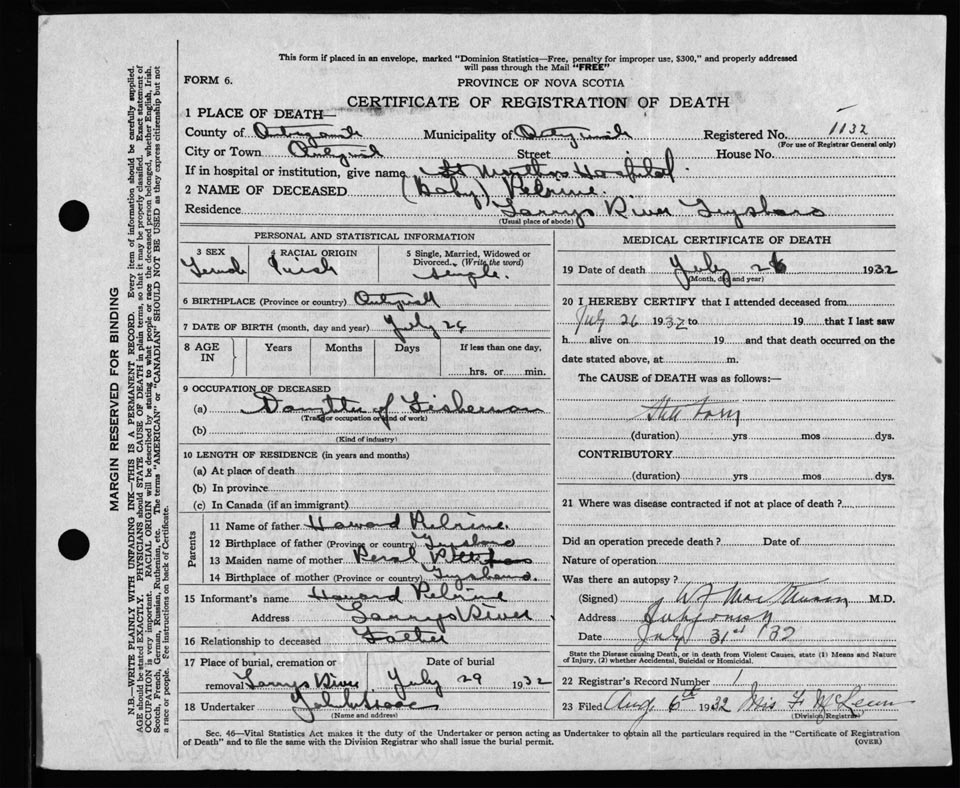 This form if placed in an envelope, marked "Dominion Statistics—Free, penalty for improper use, $300," and properly addressed
will pass through the Mail "FREE"
FORM 6.
PROVINCE OF NOVA SCOTIA
CERTIFICATE OF REGISTRATION OF DEATH
1 PLACE OF DEATH—
County of Municipality of Registered No. 1132
(For use of Registrar General only)
City or Town Street House No.
If in hospital or institution, give name St Hospital.
2 NAME OF DECEASED (Baby) Pelrine.
Residence Larrys River Guysboro
(Usual place of abode)
PERSONAL AND STATISTICAL INFORMATION
3 SEX 4 RACIAL ORIGIN 5 Single, Married, Widowed or
Divorced. (Write the word)
Female single.
6 BIRTHPLACE (Province or country)
7 DATE OF BIRTH (month, day and year) July 26
8 AGE IN Years Months Days If less than one day,
hrs. or min.
9 OCCUPATION OF DECEASED
(a) Daughter of Fisherman
(Trade, occupation or kind of work)
(b)
(Kind of industry)
10 LENGTH OF RESIDENCE (in years and months)
(a) At place of death
(b) In province
(c) In Canada (if an immigrant)
Parents
11 Name of father Howard Pelrine.
12 Birthplace of father (Province or country) Guysboro
13 Maiden name of mother
14 Birthplace of mother (Province or country) Guysboro.
15 Informant's name Howard Pelrine
Address Larrys River
16 Relationship to deceased Father
17 Place of burial, cremation or Date of burial
removal Larrys River July 29 1932
18 Undertaker
(Name and address)
MEDICAL CERTIFICATE OF DEATH
19 Date of death July 26 1932
(Month, day and year)
20 I HEREBY CERTIFY that I attended deceased from
July 26 1932 to 19 that I last saw
h alive on 19 and that death occurred on the
date stated above, at m.
The CAUSE OF DEATH was as follows:—
Still born
(duration) yrs mos dys.
CONTRIBUTORY
(duration) yrs mos dys.
21 Where was disease contracted if not at place of death?
Did an operation precede death? Date of
Nature of operation
Was there an autopsy?
(Signed) M.D.
Address
Date July 31st 32
State the Disease causing Death, or in death from Violent Causes, state (1) Means and Nature
of Injury, (2) whether Accidental, Suicidal or Homicidal.
22 Registrar's Record Number 1
23 Filed Aug 6th 1932
(Division Registrar)
Sec. 46—Vital Statistics Act makes it the duty of the Undertaker or person acting as Undertaker to obtain all the particulars required in the "Certificate of Registration
of Death" and to file the same with the Division Registrar who shall issue the burial permit.
(OVER)
MARGIN RESERVED FOR BINDING
N.B.—WRITE PLAINLY WITH UNFADING INK—THIS IS A PERMANENT RECORD. Every item of information should be carefully supplied.
AGE should be stated EXACTLY. PHYSICIANS should STATE CAUSE OF DEATH in plain terms, so that it may be properly classified. Exact statement of
OCCUPATION is very important. RACIAL ORIGIN will be described by stating to what people or race the deceased person belonged, whether English, Irish,
Scotch, French, German, Russian, Ruthenian, etc. The terms "AMERICAN" or "CANADIAN" SHOULD NOT BE USED as they express citizenship but not
a race or people. See instructions on back of Certificate.